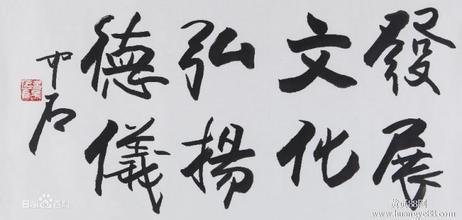 發展
文化
弘揚
德儀
中石
Baidu百科
www.huangye88.com